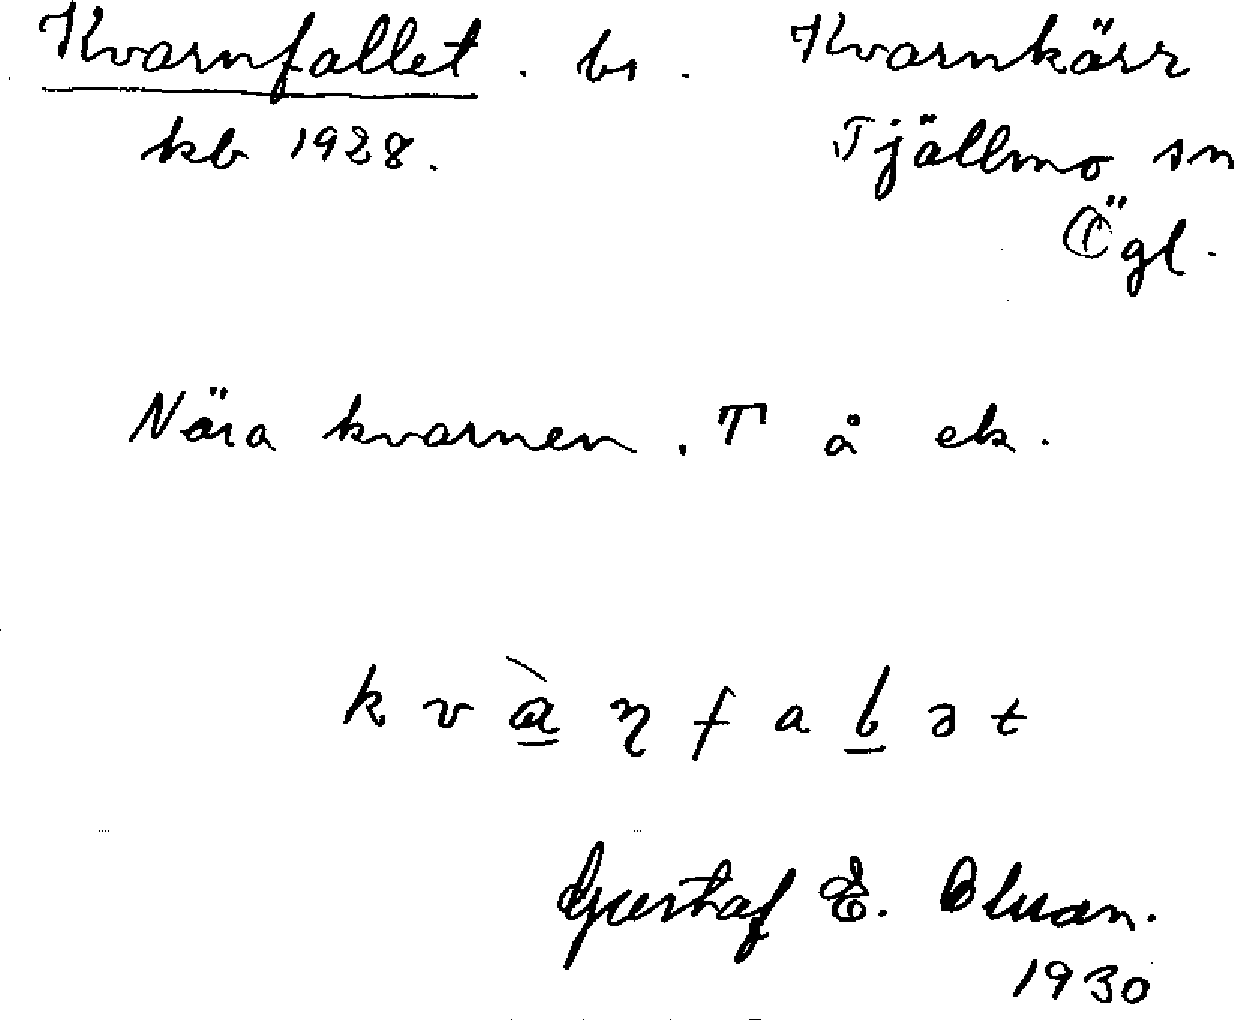 Kvarnfallet. bs. Kvarnkärr
kb 1928. Tjällmo sn
Ögl.
Nära kvarnen. T å ek.
k v à̱ ɳ f a ḻ ə t
Gustaf E.
1930